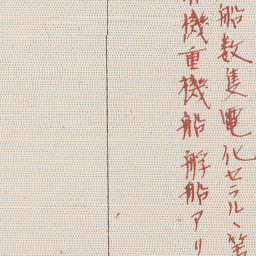 船数隻電化セラル、等
機重機船艀船アリ